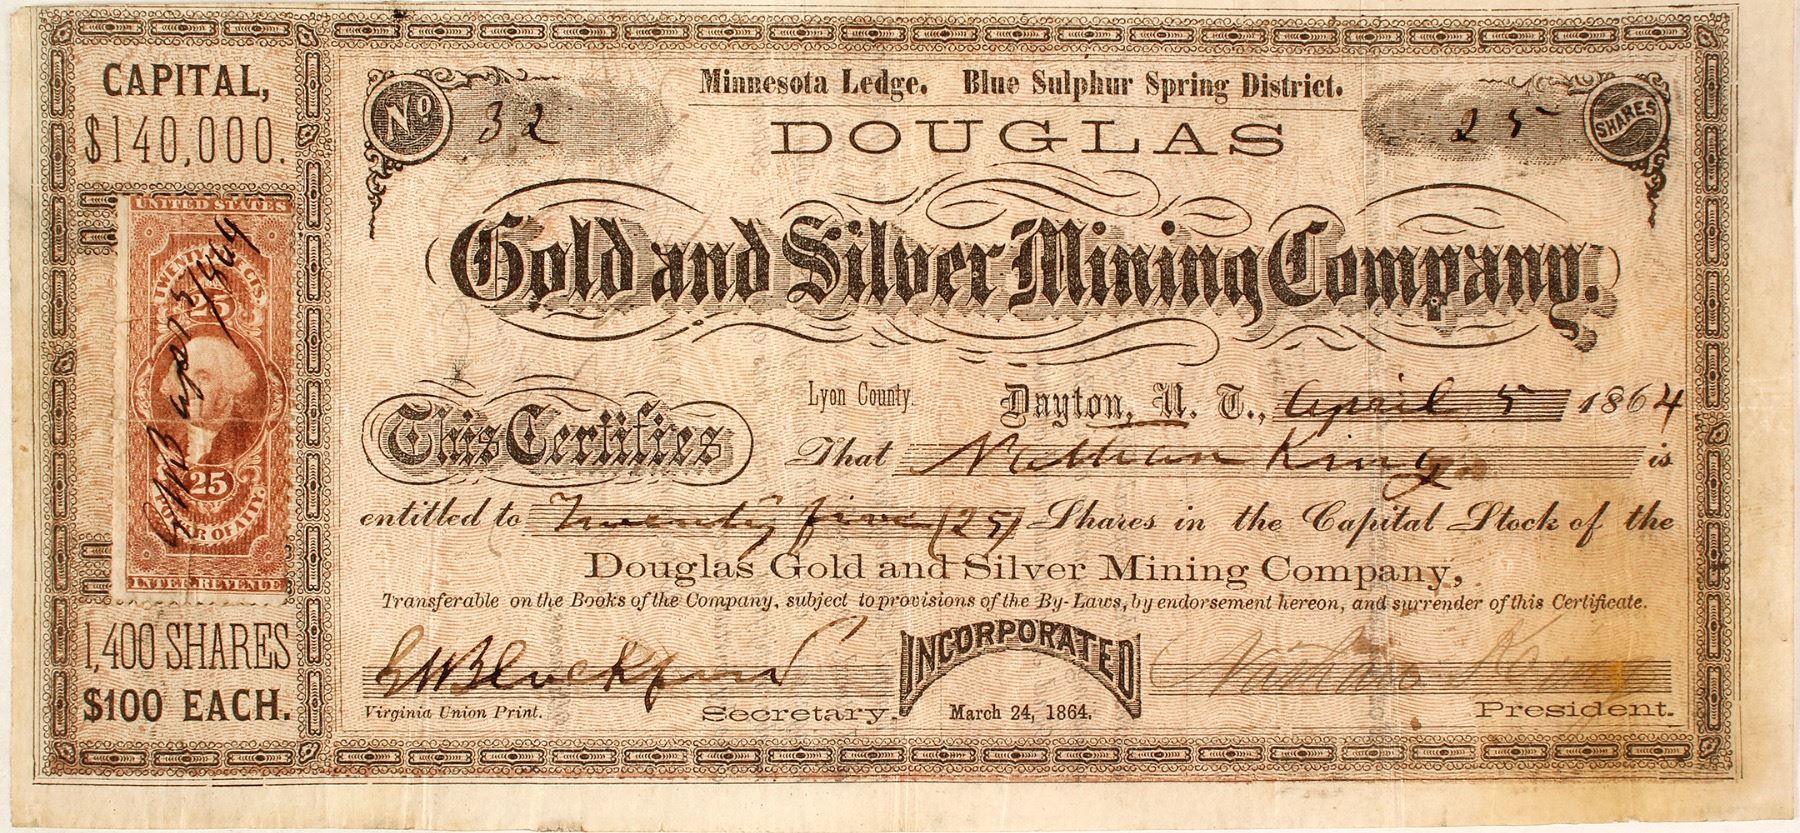 CAPITAL,
$140,000.
UNITED STATES
TWENTY FIVE CTS.
25
GWB April 5/1864
25
POWER OF ATT'Y.
INTER. REVENUE
1,400 SHARES
$100 EACH.
Minnesota Ledge. Blue Sulphur Spring District.
No 32
25 SHARES
DOUGLAS
Gold and Silver Mining Company.
Lyon County. Dayton, N. T., April 5 1864
This Certifies That Nathan King is
entitled to Twenty five (25) Shares in the Capital Stock of the
Douglas Gold and Silver Mining Company,
Transferable on the Books of the Company, subject to provisions of the By-Laws, by endorsement hereon, and surrender of this Certificate.
INCORPORATED
March 24, 1864.
Nathan King
Virginia Union Print. Secretary.
President.